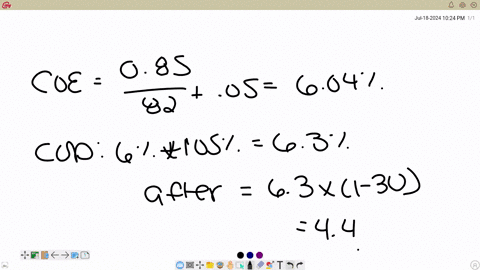 Jul-18-2024 10:24 PM 1/1
COE = 0.85 / 82 + .05 = 6.04%.
COD: 6% * 105% = 6.3%.
after = 6.3 x (1-30)
= 4.4